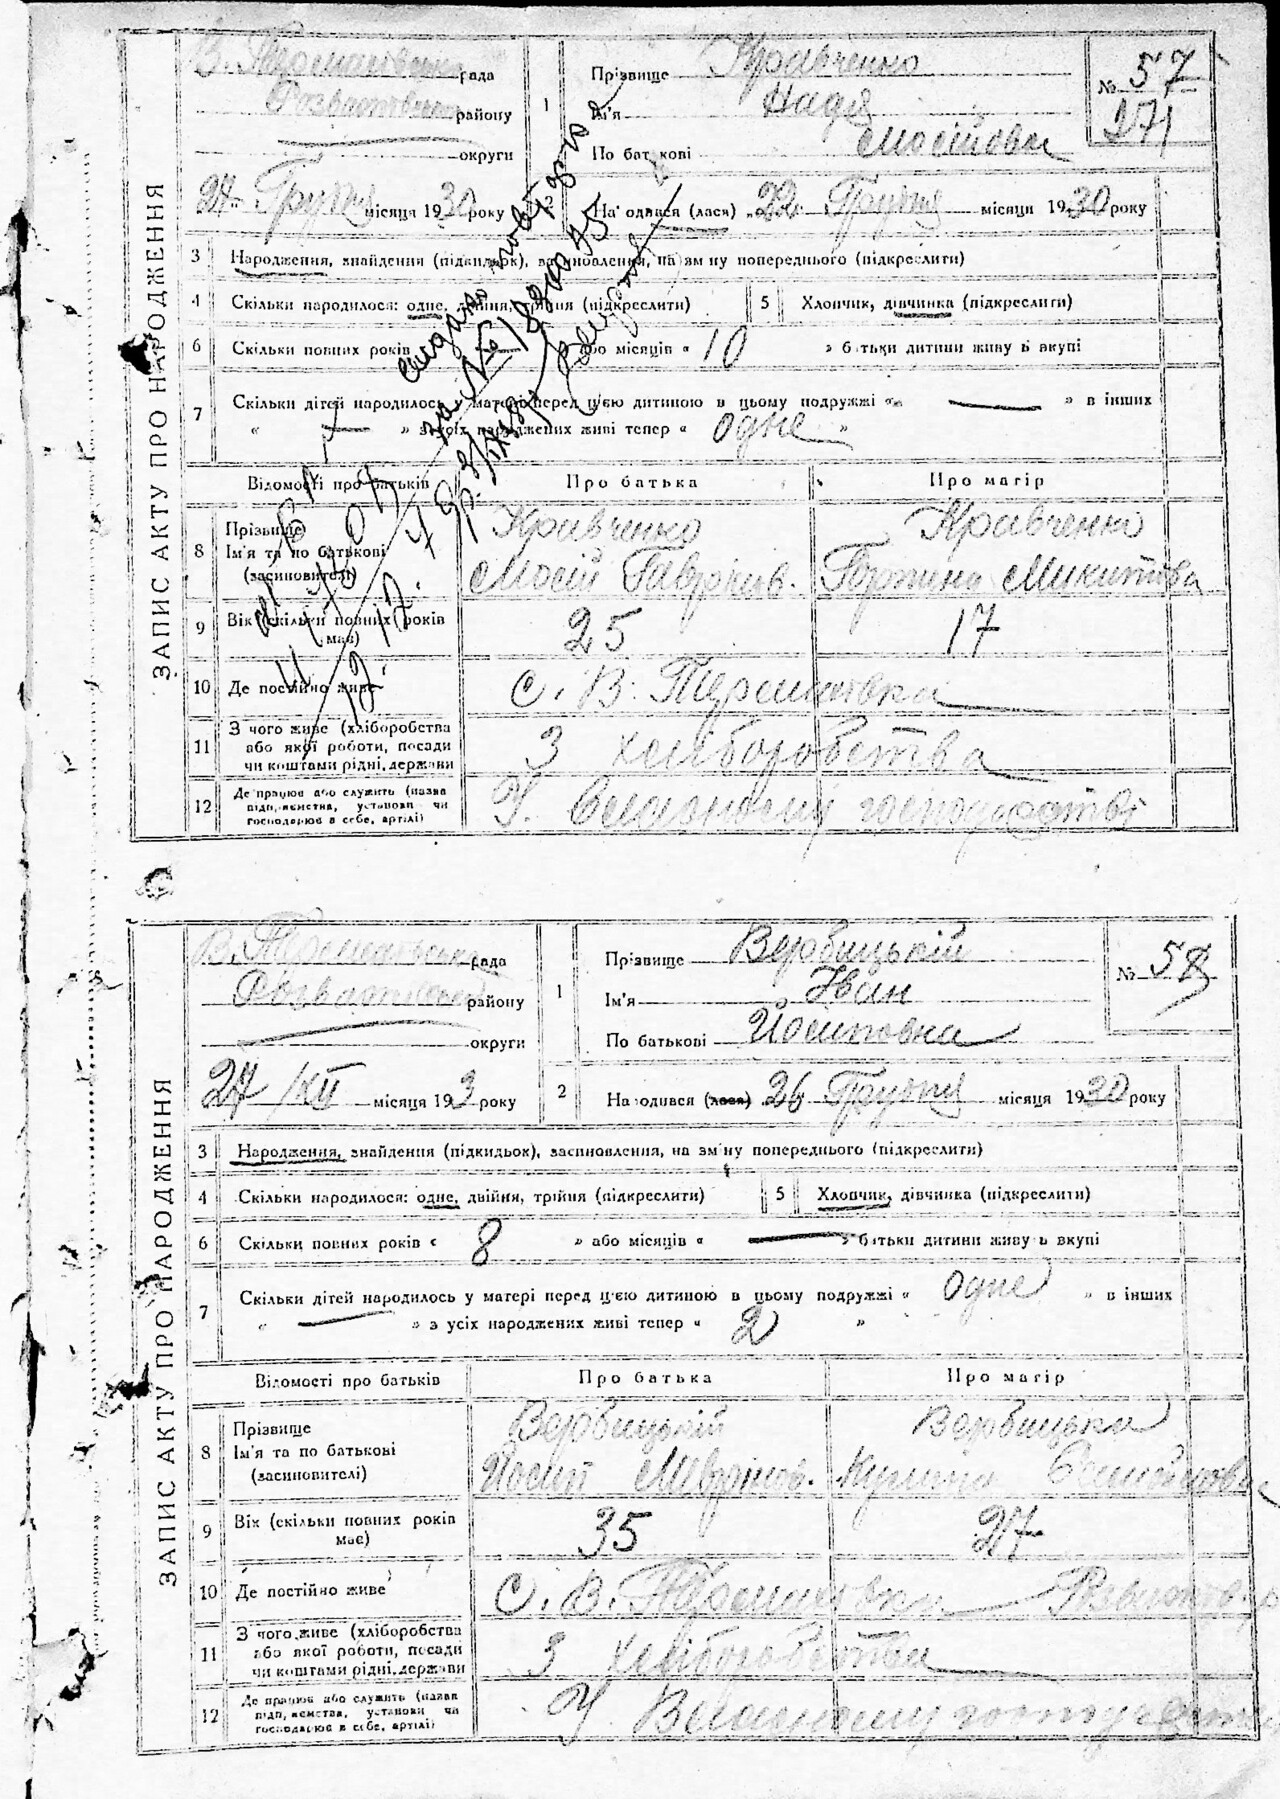 ЗАПИС АКТУ ПРО НАРОДЖЕННЯ
рада
району
округи
24 Грудня місяця 1930 року
1 Прізвище Кравченко
Ім'я Надя
По батькові Мосійовна
№ 57
271
2 На одився (лася) 22 Грудня місяця 1930 року
3 Народження, знайдення (підкидьок), засиновлення, на зм ну попереднього (підкреслити)
4 Скільки народилося: одне, двійня, трійня (підкреслити) 5 Хлопчик, дівчинка (підкреслити)
6 Скільки повних років або місяців « 10 » батьки дитини живу ь вкупі
7 Скільки дітей народилось у матері перед ц'єю дитиною в цьому подружжі « — » в інших
« — » з усіх народжених живі тепер « одне »
Відомості про батьків Про батька Про матір
8 Прізвище Ім'я та по батькові (засиновителі)
Кравченко Кравченко
Мосій Микитовна
9 Вік (скільки повних років має) 25 17
10 Де постійно живе с. В. Термахівка
11 З чого живе (хліборобства або якої роботи, посади чи коштами рідні, держави З хліборобства
12 Де працює або служить (назва підп,иємства, установи чи господарює в себе, артілі) У Власному господарстві
ЗАПИС АКТУ ПРО НАРОДЖЕННЯ
рада
району
округи
27/XII місяця 193 року
1 Прізвище Вербицький
Ім'я Іван
По батькові Йосиповна
№ 58
2 На одився (лася) 26 Грудня місяця 1930 року
3 Народження, знайдення (підкидьок), засиновлення, на зм ну попереднього (підкреслити)
4 Скільки народилося: одне, двійня, трійня (підкреслити) 5 Хлопчик, дівчинка (підкреслити)
6 Скільки повних років « 8 » або місяців « — » батьки дитини живу ь вкупі
7 Скільки дітей народилось у матері перед ц'єю дитиною в цьому подружжі « одне » в інших
« — » з усіх народжених живі тепер « 2 »
Відомості про батьків Про батька Про матір
8 Прізвище Ім'я та по батькові (засиновителі)
Вербицький Вербицька
Йосип
9 Вік (скільки повних років має) 35 27
10 Де постійно живе с. В. Термахівка
11 З чого живе (хліборобства або якої роботи, посади чи коштами рідні, держави З хліборобства
12 Де працює або служить (назва підп,иємства, установи чи господарює в себе, артілі) У Власному господарстві